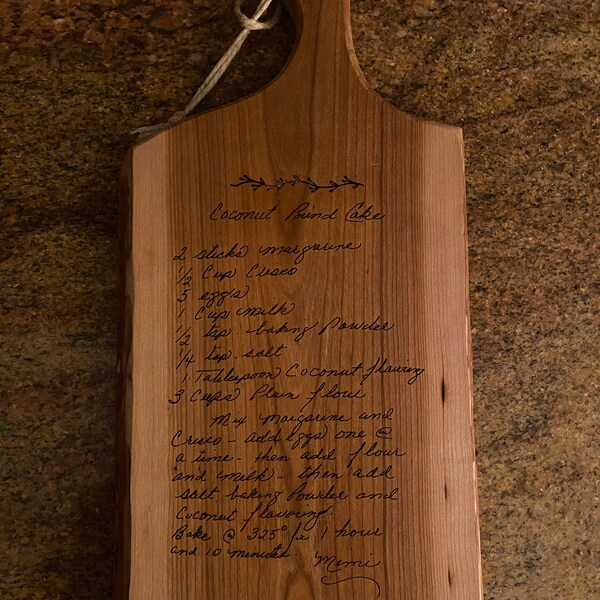 Coconut Pound Cake
2 sticks margarine
1/2 Cup Crisco
5 eggs
1 Cup milk
1/2 tsp baking Powder
1/4 tsp. salt
1 Tablespoon Coconut flavoring
3 Cups Plain flour
Mix Margarine and
Crisco - add eggs one @
a time - then add flour
and milk - then add
salt baking Powder and
Coconut flavoring.
Bake @ 325° for 1 hour
and 10 minutes. Mimi